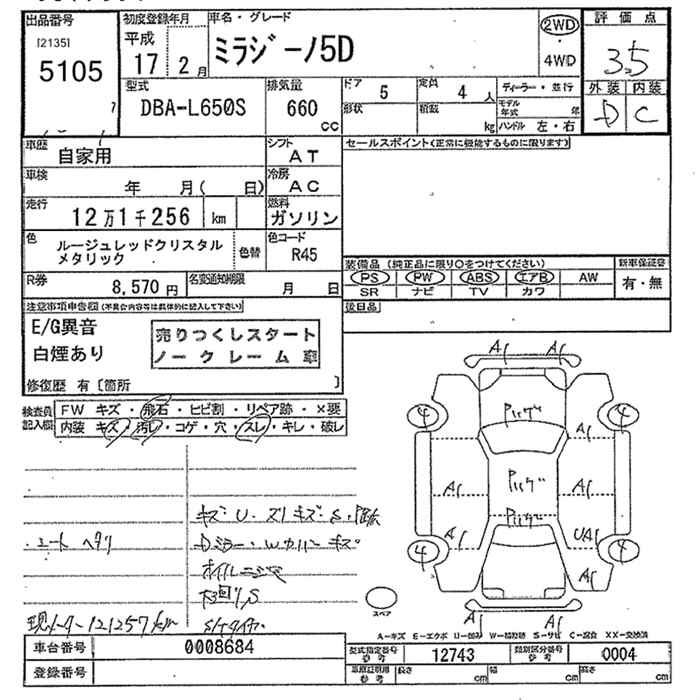 出品番号
[2135]
5105
初度登録年月
平成
17 2月
車名・グレード
ミラジーノ5D
2WD
・
4WD
評価点
3.5
外装 内装
D C
型式
DBA-L650S
排気量
660
cc
ドア
5
定員
4 人
形状
積載
kg
ディーラー・並行
モデル年式
年
ハンドル 左・右
車歴
自家用
シフト
AT
セールスポイント(正常に機能するものに限ります)
車検
年 月( 日)
冷房
AC
走行
12万1千256 km
燃料
ガソリン
色
ルージュレッドクリスタル
メタリック
色替
色コード
R45
R券
8,570 円
名変通知期限
月 日
装備品 (純正品に限り○をつけてください)
PS PW ABS エアB AW
SR ナビ TV カワ
新車保証書
有・無
後日品
注意事項申告欄(不具合内容等は具体的に記入して下さい)
E/G異音
白煙あり
売りつくしスタート
ノークレーム車
修復歴 有〔箇所 〕
検査員
記入欄
FW キズ・飛石・ヒビ割・リペア跡・×要
内装 キズ・汚レ・コゲ・穴・スレ・キレ・破レ
A1 A1
4 4
A1
A1 A1
A1 UA1
4 4
A1
A1 A1
スペア
シート ヘタリ
キズ・U・スリキズ・S・
Dミラー・Wカバーキズ
オイルニジミ
現メーター121257km
A-キズ E-エクボ U-凹み W-補修跡 S-サビ C-腐食 XX-交換済
車台番号
0008684
登録番号
型式指定番号
参考
12743
類別区分番号
参考
0004
車庫証明用
参考
長さ
cm
幅
cm
高さ
cm